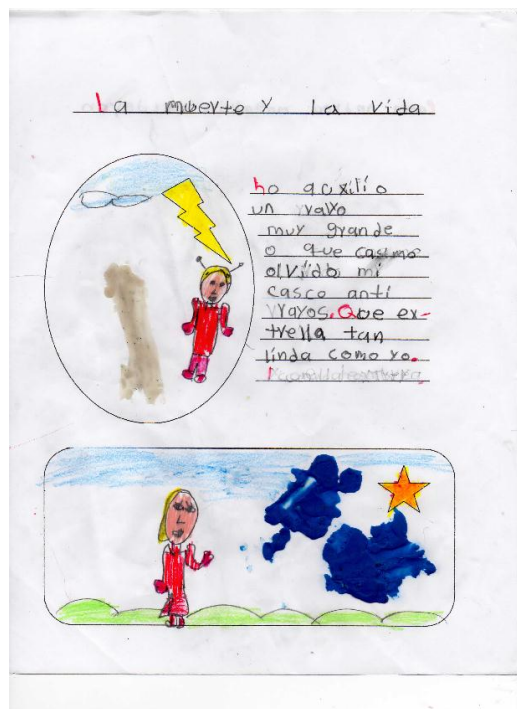 La muerte y la vida
ho auxilio
un rayo
muy grande
o que casi mo
olviido mi
casco anti
rayos. Que ex-
trella tan
linda como yo.